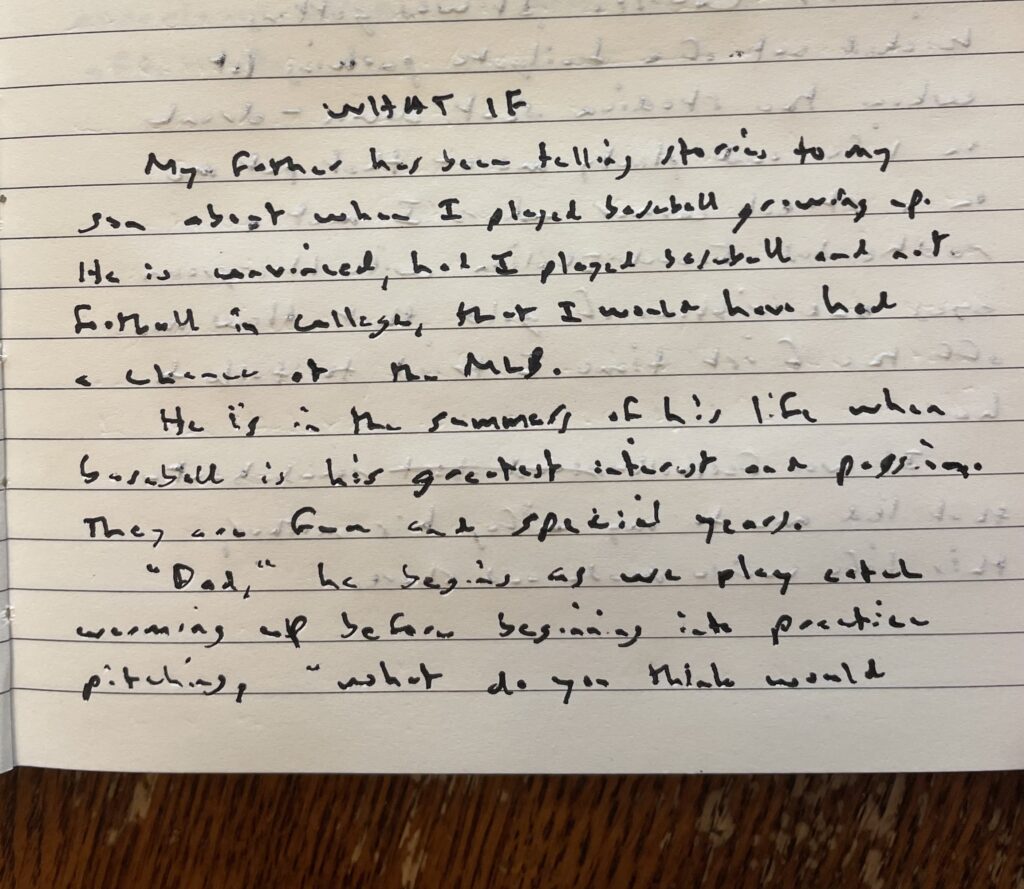 WHAT IF
My Father has been telling stories to my
son about when I played baseball growing up.
He is convinced, had I played baseball and not
football in college, that I would have had
a chance at the MLB.
He is in the summers of his life when
baseball is his greatest interest and passion.
They are fun and special years.
"Dad," he begins as we play catch
warming up before beginning into practice
pitching, "what do you think would